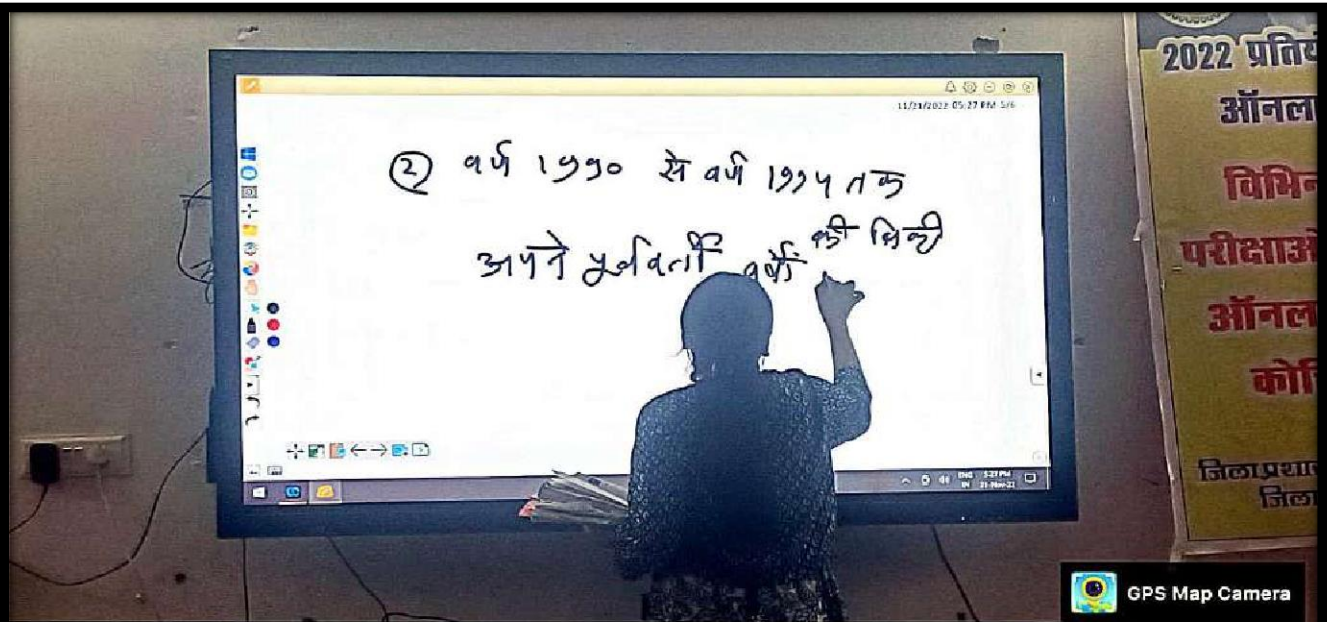 11/21/2022 05:27 PM 5/6
② वर्ष 1990 से वर्ष 1994 तक
अपने पूर्ववर्ती वर्षों की बिक्री
ENG 5:27 PM
IN 21-Nov-22
2022 प्रतिय
ऑनल
विभिन
परीक्षाओ
ऑनल
कोचि
जिला प्रशा
जिला
GPS Map Camera